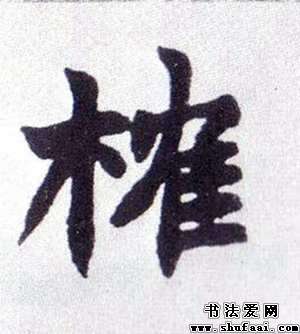 榷
书法爱网
www.shufaai.com